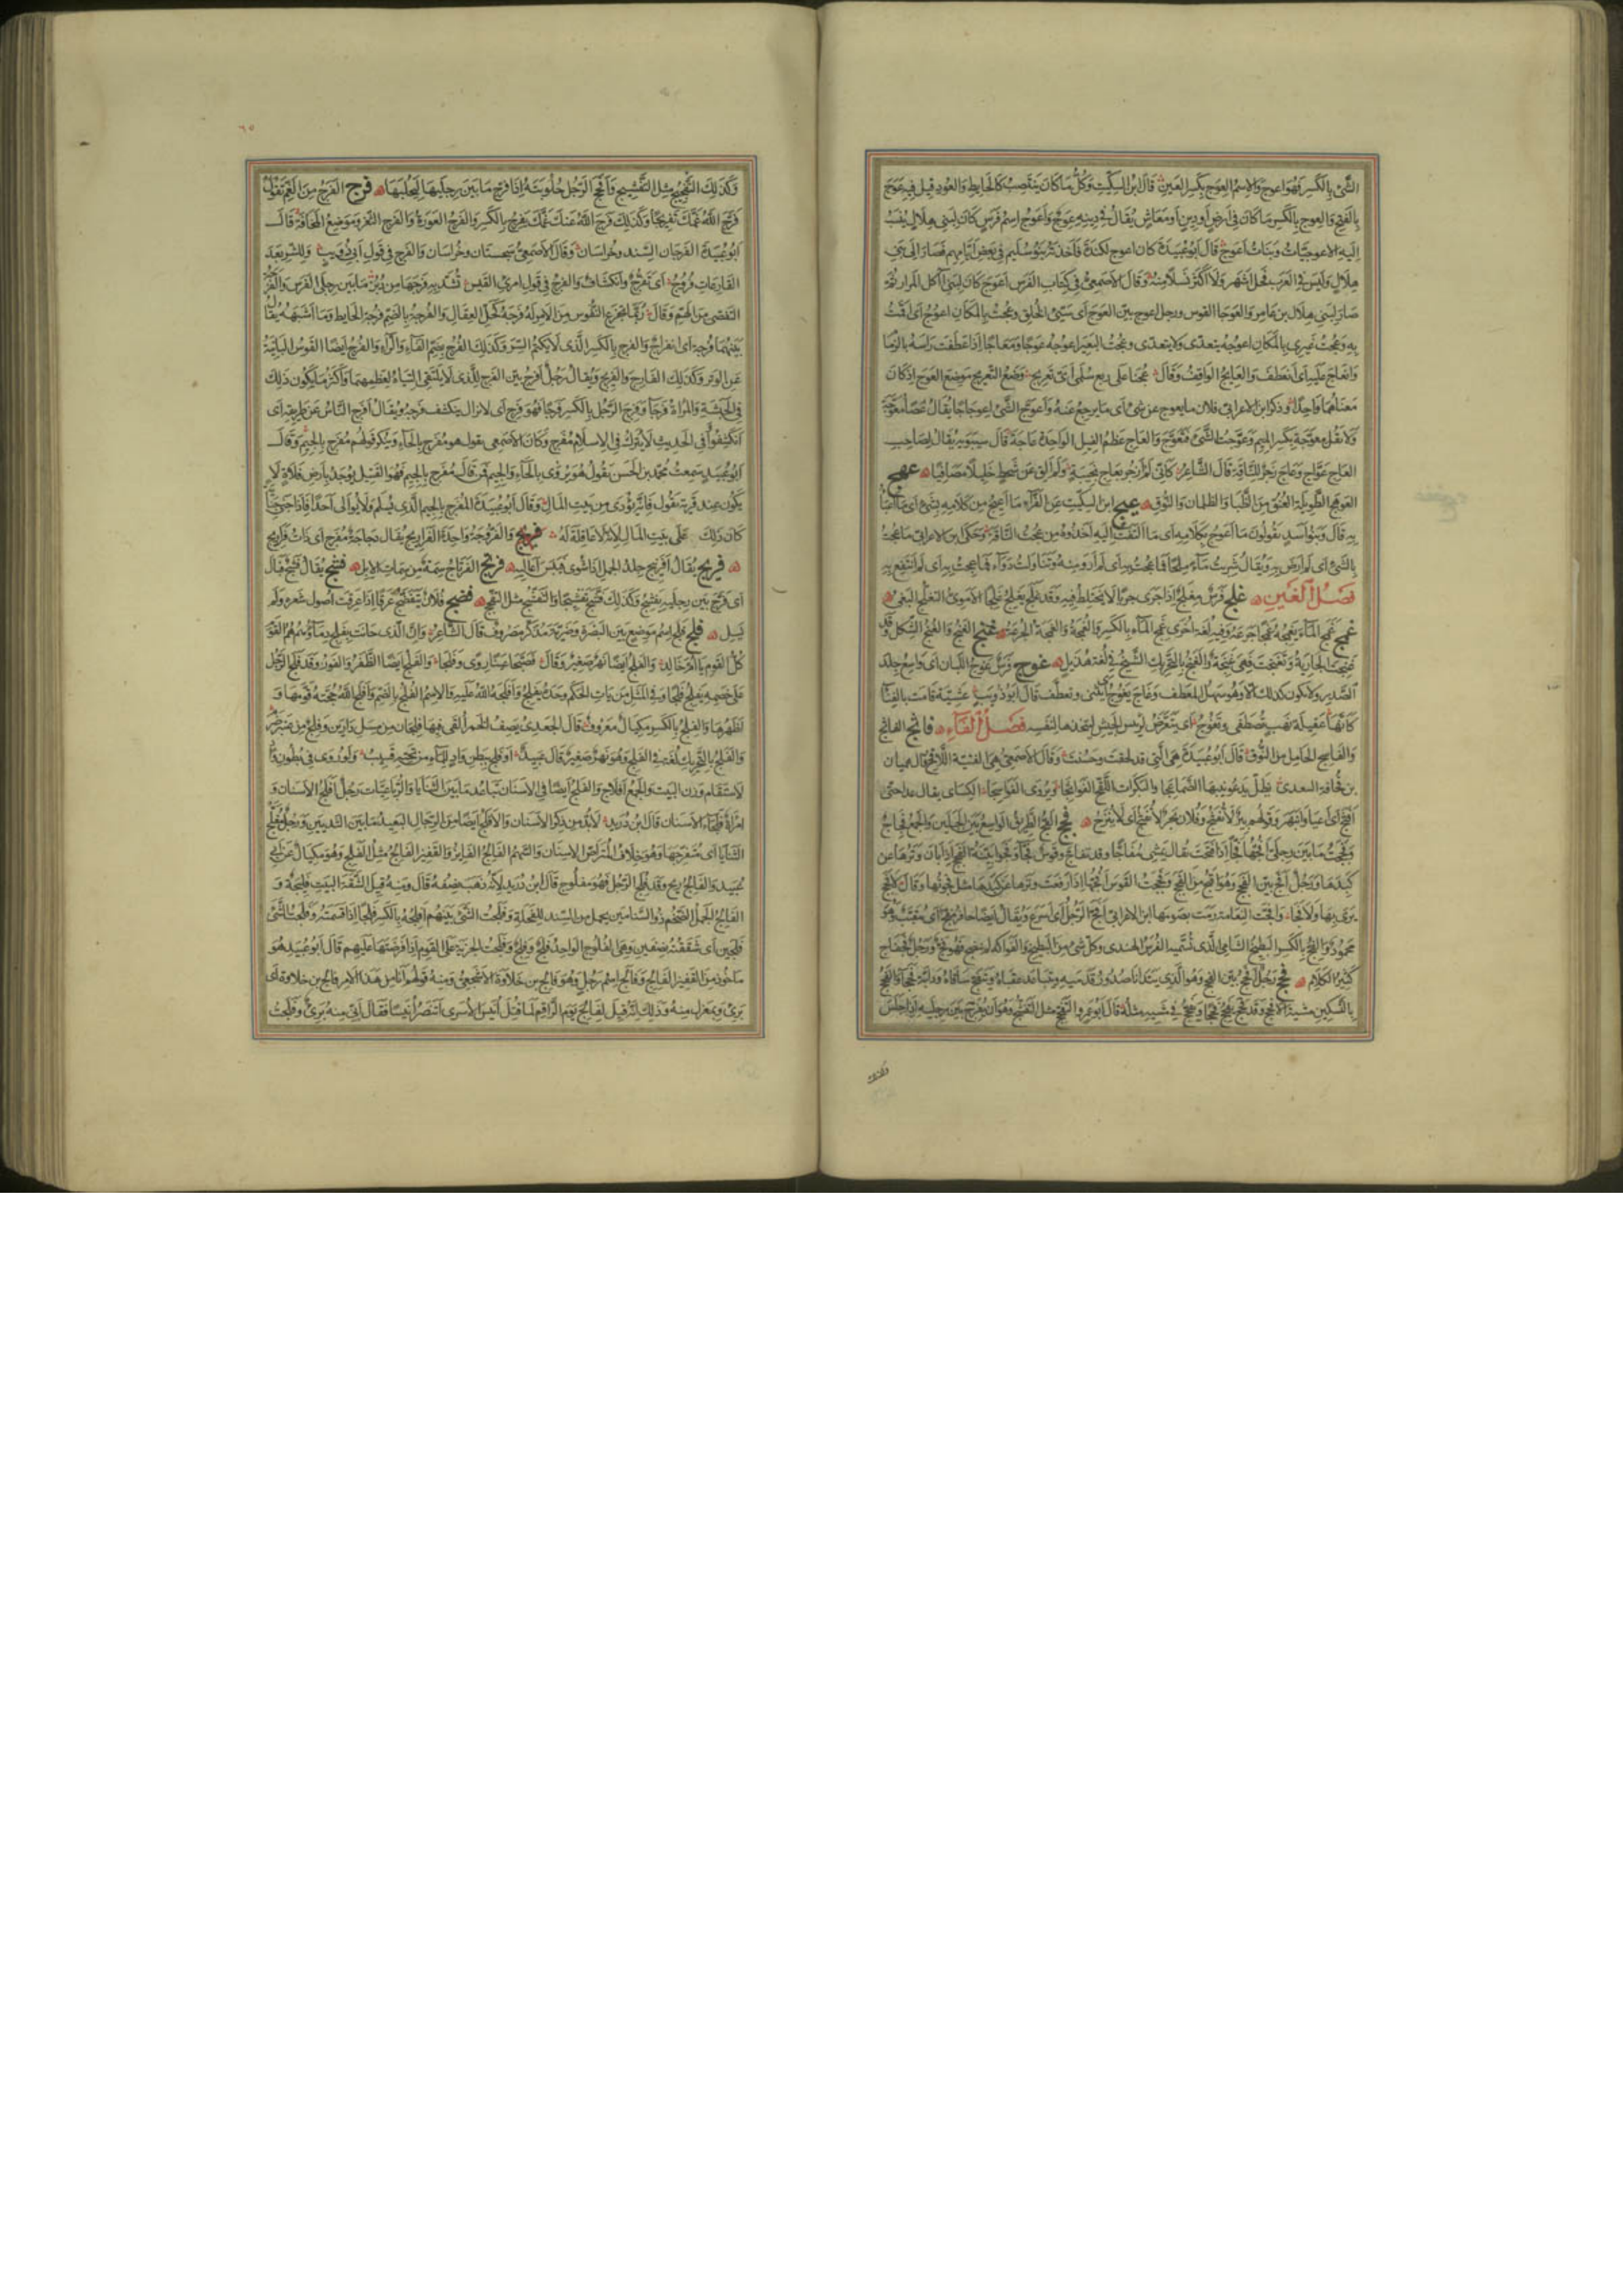 الشئ بالكسر فهو اعوج والاسم العوج بكسر العين قال ابن السكيت وكل ما كان ينتصب كالحايط والعود قيل فيه عوج
بالفتح والعوج بالكسر ما كان في ارض او دين او معاش يقال في دينه عوج واعوج اسم فرس كان لبني هلال ينسب
اليه الاعوجيات وبنات اعوج قال ابو عبيدة كان اعوج لكندة فاخذته بنو سليم في بعض ايامهم فصار الى بني
هلال وليس في العرب فحل اشهر ولا اكثر نسلا منه وقال الاصمعي في كتاب الفرس اعوج كان لبني آكل المرار ثم
صار لبني هلال بن عامر والعوجا القوس ورجل اعوج بين العوج اى سيئ الخلق وعجت بالمكان اعوج اى اقمت
به وعجت غيري بالمكان اعوجه يتعدى ولا يتعدى وعجت البعير اعوجه عوجا ومعاجا اذا عطفت راسه بالزمام
وانعاج عليه اى انعطف والعايج الواقف وقال عجنا على ربع سلمى اى تعريج وضع التعريج موضع العوج اذ كان
معناهما واحدا وذكر ابن الاعرابي فلان ما يعوج عن شئ اى ما يرجع عنه واعوج الشئ اعوجاجا يقال عصا معوجة
ولا تقل معوجة بكسر الميم وعوجت الشئ فتعوج والعاج عظم الفيل الواحدة عاجة قال سيبويه يقال لصاحب
العاج عواج وعاج زجر للناقة قال الشاعر كاني لم ازجر بعاج نجيبة ولم الق عن شحط خليلا مصافيا عهج
العوهج الطويلة العنق من الظبا والظلمان والنوق عيج ابن السكيت عن الفراء ما اعيج من كلامه بشئ اى ما اعبأ
به قال وبنو اسد يقولون ما اعوج بكلامه اى ما التفت اليه اخذوه من عجت الناقة وحكى ابن الاعرابي ما عجت
بالشئ اى لم ارض به ويقال شربت ماء ملحا فما عجت به اى لم ارو منه وتناولت دواء فما عجت به اى لم انتفع به
فصل الغين غلج فرس مغلج اذا جرى جريا لا يختلط فيه وقد غلج يغلج غلجا الاموي التغلج البغي
غمج غمج الماء يغمجه غمجا جرعه وفيه لغة اخرى غمج الماء بالكسر والغمجة والغمجة الجرعة غنج الغنج والغنج الشكل وقد
غنجت الجارية وتغنجت فهي غنجة والغنج بالتحريك الشيخ في لغة هذيل غوج فرس غوج اللبان اى واسع جلد
الصدر ولا يكون كذلك الا وهو سهل المعطف وغاج يغوج اى يتثنى وتعطف قال ابو ذؤيب عشية قامت بالفناء
كانها عقيلة نهب تصطفى وتغوج اى يتعرض لرئيس الجيش ليتخذها لنفسه فصل الفاء فاثج الفاثج
والفايج الحامل من النوق قال ابو عبيدة هي التي قد لقحت وحسنت وقال الاصمعي هي الفتية اللاقح قال هميان
بن قحافة السعدي يظل يدعو نيبها الضماعجا والبكرات اللقح الفواثجا ويروى الفواسجا الكسائي يقال عدا حتى
افثج اى اعيا وانبهر وقولهم بئر لا تفثج وفلان بحر لا يفثج اى لا ينزح فجج الفج الطريق الواسع بين الجبلين والجمع فجاج
وفججت ما بين رجلي افجهما فجا اذا فتحت يقال يمشي مفاجا وقد تفاج وقوس فجاء وفجواء بينة الفجج اذا بان وترها عن
كبدها ورجل افج بين الفجج وهو اقبح من الفحج وفججت القوس افجها اذا رفعت وترها عن كبدها مثل فجوتها وقال لا فجج
يرى بها ولا فجا وافجت النعامة رمت بصومها ابن الاعرابي افج الرجل اى اسرع ويقال ايضا حافر مفج اى مقبب وهو
محمود والفج بالكسر البطيخ الشامي الذي تسميه الفرس الهندي وكل شئ من البطيخ والفواكه لم ينضج فهو فج ورجل فجفاج
كثير الكلام فحج رجل افحج بين الفحج وهو الذي يتدانا صدور قدميه وتتباعد عقباه وتتفحج ساقاه ودابة فحجاء والفحج
بالتسكين مشية الافحج وقد فحج يفحج فحجا وفحج في مشيه مثله قال ابو عمرو التفحج مثل التفشج وهو ان يفرج بين رجليه اذا جلس
وكذلك
٦٥
وكذلك التفحيج مثل التفشيج وافحج الرجل حلوبته اذا فرج ما بين رجليها ليحلبها فرج الفرج من الغم تقول
فرج الله غمك تفريجا وكذلك فرج الله عنك غمك يفرج بالكسر والفرج العورة والفرج الثغر وموضع المخافة قال
ابو عبيدة الفرجان السند وخراسان وقال الاصمعي سجستان وخراسان والفرج في قول ابي ذؤيب وللشر بعد
القارعات فروج اى تفرج وانكشاف والفرج في قول امرئ القيس تسد به فرجها من دبر ما بين رجلي الفرس والفرجة
التفصي من الهم وقال ربما تجزع النفوس من الامر له فرجة كحل العقال والفرجة بالضم فرجة الحايط وما اشبهه يقال
بينهما فرجة اى انفراج والفرج بالكسر الذي لا يكتم السر وكذلك الفرج بضم الفاء والراء والفرج ايضا القوس الباينة
عن الوتر وكذلك الفارج والفريج ويقال رجل افرج بين الفرج للذي لا يلتقى الياه لعظمهما واكثر ما يكون ذلك
في الحبشة والمراة فرجاء وفرج الرجل بالكسر فرجا فهو فرج اى لا يزال ينكشف فرجه ويقال افرج الناس عن طريقه اى
انكشفوا في الحديث لا يترك في الاسلام مفرج وكان الاصمعي يقول هو مفرح بالحاء وينكر قولهم مفرج بالجيم وقال
ابو عبيد سمعت محمد بن الحسن يقول هو يروى بالحاء والجيم فمن قال مفرج بالجيم فهو القتيل يوجد بارض فلاة لا
يكون عند قرية يقول فانه يودى من بيت المال وقال ابو عبيدة المفرج بالجيم الذي يسلم ولا يوالى احدا فاذا جنى جناية
كان ذلك على بيت المال لانه لا عاقلة له فروج والفروجة واحدة الفراريج يقال دجاجة مفرج اى ذات فراريج
فربج يقال افرنبج جلد الجمل اذا شوي فيبس اعاليه فرتج الفرتاج سمة من سمات الابل فشج يقال فشج فبال
اى فرج بين رجليه يفشج وكذلك فشج تفشيجا والتفشج مثل التفحج فضج فلان يتفضج عرقا اذا عرقت اصول شعره ولم
يسل فلج فلج اسم موضع بين البصرة وضرية مذكر مصروف قال الشاعر وان الذي حانت بفلج دماؤهم هم القوم
كل القوم يا ام خالد والفلج ايضا نهر صغير وقال فصبحا عينا روى وفلجا والفلج ايضا الظفر والفوز وقد فلج الرجل
على خصمه يفلج فلجا وفي المثل من يات الحكم وحده يفلج وافلجه الله عليه والاسم الفلج بالضم وافلج الله حجته قومها و
اظهرها والفلج بالكسر مكيال معروف قال الجعدي يصف الخمر القي فيها فلجان من مسك دارين وفلج من عنبر ضرم
والفلج بالتحريك لغة في الفلج وهو نهر صغير قال عبيد او فلج ببطن واد للماء من تحته قسيب ولو روى في بطون واد
لاستقام وزن البيت والجمع افلاج والفلج ايضا في الاسنان تباعد ما بين الثنايا والرباعيات رجل افلج الاسنان و
امراة فلجاء الاسنان قال ابن دريد لابد من ذكر الاسنان والافلج ايضا من الرجال البعيد ما بين الثديين ورجل مفلج
الثنايا اى منفرجها وهو خلاف المتراص الاسنان والسهم الفالج الفايز والقفيز الفالج مثل الفلج وهو مكيال عن ابي
عبيد والفالج ريح وقد فلج الرجل فهو مفلوج قال ابن دريد لانه ذهب نصفه قال ومنه قيل لشقة البيت فليجة و
الفالج الجمل الضخم ذو السنامين يحمل من السند للفحلة وفلجت الشئ بينهم افلجه بالكسر فلجا اذا قسمته وفلجت الشئ
فلجين اى شققته نصفين وهي الفلوج الواحد فلج وفلج وفلجت الجزية على القوم اذا فرضتها عليهم قال ابو عبيد هو
ماخوذ من القفيز الفالج وفالج اسم رجل وهو فالج بن خلاوة الاشجعي ومنه قولهم انا من هذا الامر فالج بن خلاوة اى
برئ وبمعزل منه وذلك انه قيل لفالج يوم الرقم لما قتل انيس الاسرى اتنصر انيسا فقال اني منه برئ وفلجت